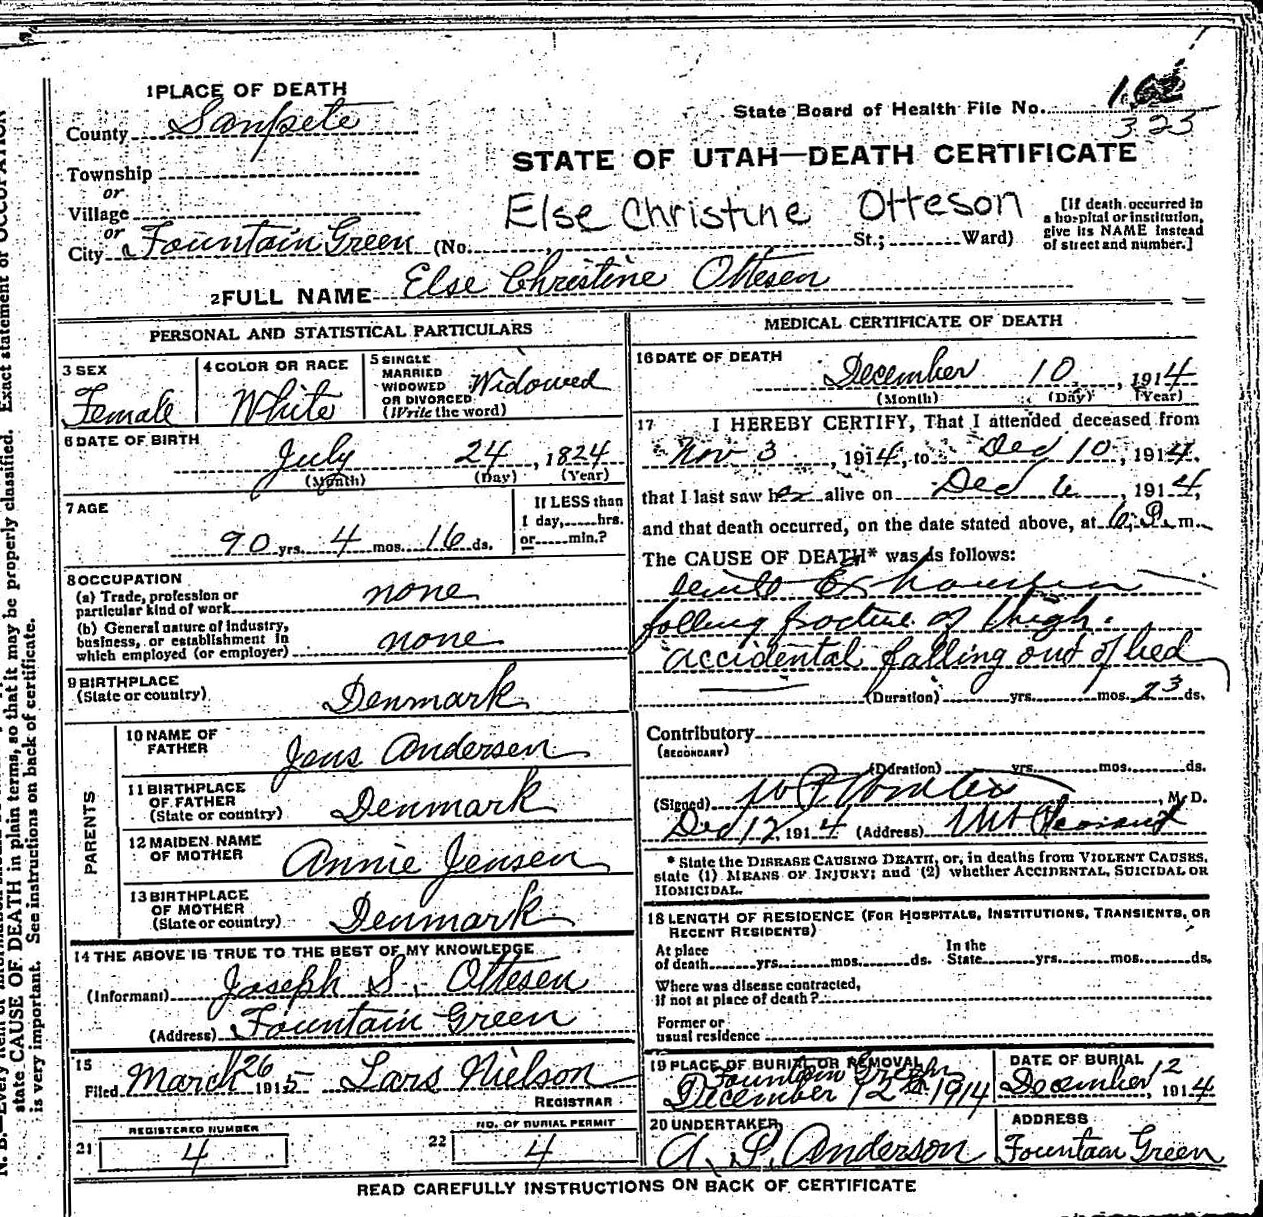 1 PLACE OF DEATH
County Sanpete
State Board of Health File No. 323
Township
or
Village
or
City Fountain Green (No. St.; Ward)
STATE OF UTAH—DEATH CERTIFICATE
Else Christine Otteson
[If death occurred in a hospital or institution, give its NAME instead of street and number.]
2 FULL NAME Else Christine Ottesen
PERSONAL AND STATISTICAL PARTICULARS
3 SEX
Female
4 COLOR OR RACE
White
5 SINGLE
MARRIED
WIDOWED
OR DIVORCED
(Write the word)
Widowed
6 DATE OF BIRTH
July 24, 1824
(Month) (Day) (Year)
7 AGE
90 yrs. 4 mos. 16 ds.
If LESS than
1 day, hrs.
or min.?
8 OCCUPATION
(a) Trade, profession or
particular kind of work none
(b) General nature of industry,
business, or establishment in
which employed (or employer) none
9 BIRTHPLACE
(State or country) Denmark
PARENTS
10 NAME OF
FATHER Jens Andersen
11 BIRTHPLACE
OF FATHER
(State or country) Denmark
12 MAIDEN NAME
OF MOTHER Annie Jensen
13 BIRTHPLACE
OF MOTHER
(State or country) Denmark
14 THE ABOVE IS TRUE TO THE BEST OF MY KNOWLEDGE
(Informant) Joseph S. Ottesen
(Address) Fountain Green
15
Filed March 26 1915 Lars Nielson
REGISTRAR
21 REGISTERED NUMBER
4
22 NO. OF BURIAL PERMIT
4
MEDICAL CERTIFICATE OF DEATH
16 DATE OF DEATH
December 10, 1914
(Month) (Day) (Year)
17 I HEREBY CERTIFY, That I attended deceased from
Nov 3, 1914, to Dec 10, 1914.
that I last saw her alive on Dec 6, 1914,
and that death occurred, on the date stated above, at 6, P. m.
The CAUSE OF DEATH* was as follows:
Exhaustion
folling fracture of thigh.
accidental falling out of bed
(Duration) yrs. mos. 23 ds.
Contributory
(SECONDARY)
(Duration) yrs. mos. ds.
(Signed) , M. D.
Dec 12 1914 (Address) Mt Pleasant
* State the DISEASE CAUSING DEATH, or, in deaths from VIOLENT CAUSES,
state (1) MEANS OF INJURY; and (2) whether ACCIDENTAL, SUICIDAL OR
HOMICIDAL.
18 LENGTH OF RESIDENCE (FOR HOSPITALS, INSTITUTIONS, TRANSIENTS, OR
RECENT RESIDENTS)
At place
of death yrs. mos. ds. In the State yrs. mos. ds.
Where was disease contracted,
if not at place of death?
Former or
usual residence
19 PLACE OF BURIAL OR REMOVAL
Fountain Green
December 12th 1914
DATE OF BURIAL
December 12, 1914
20 UNDERTAKER
A. P. Anderson
ADDRESS
Fountain Green
READ CAREFULLY INSTRUCTIONS ON BACK OF CERTIFICATE
state CAUSE OF DEATH in plain terms, so that it may be properly classified. Exact statement of OCCUPATION
is very important. See instructions on back of certificate.